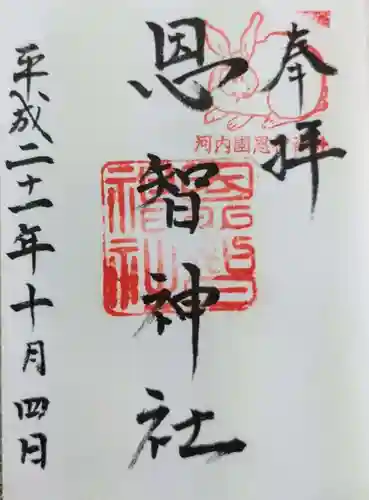 奉拝
恩智神社
平成二十一年十月四日
恩智神社